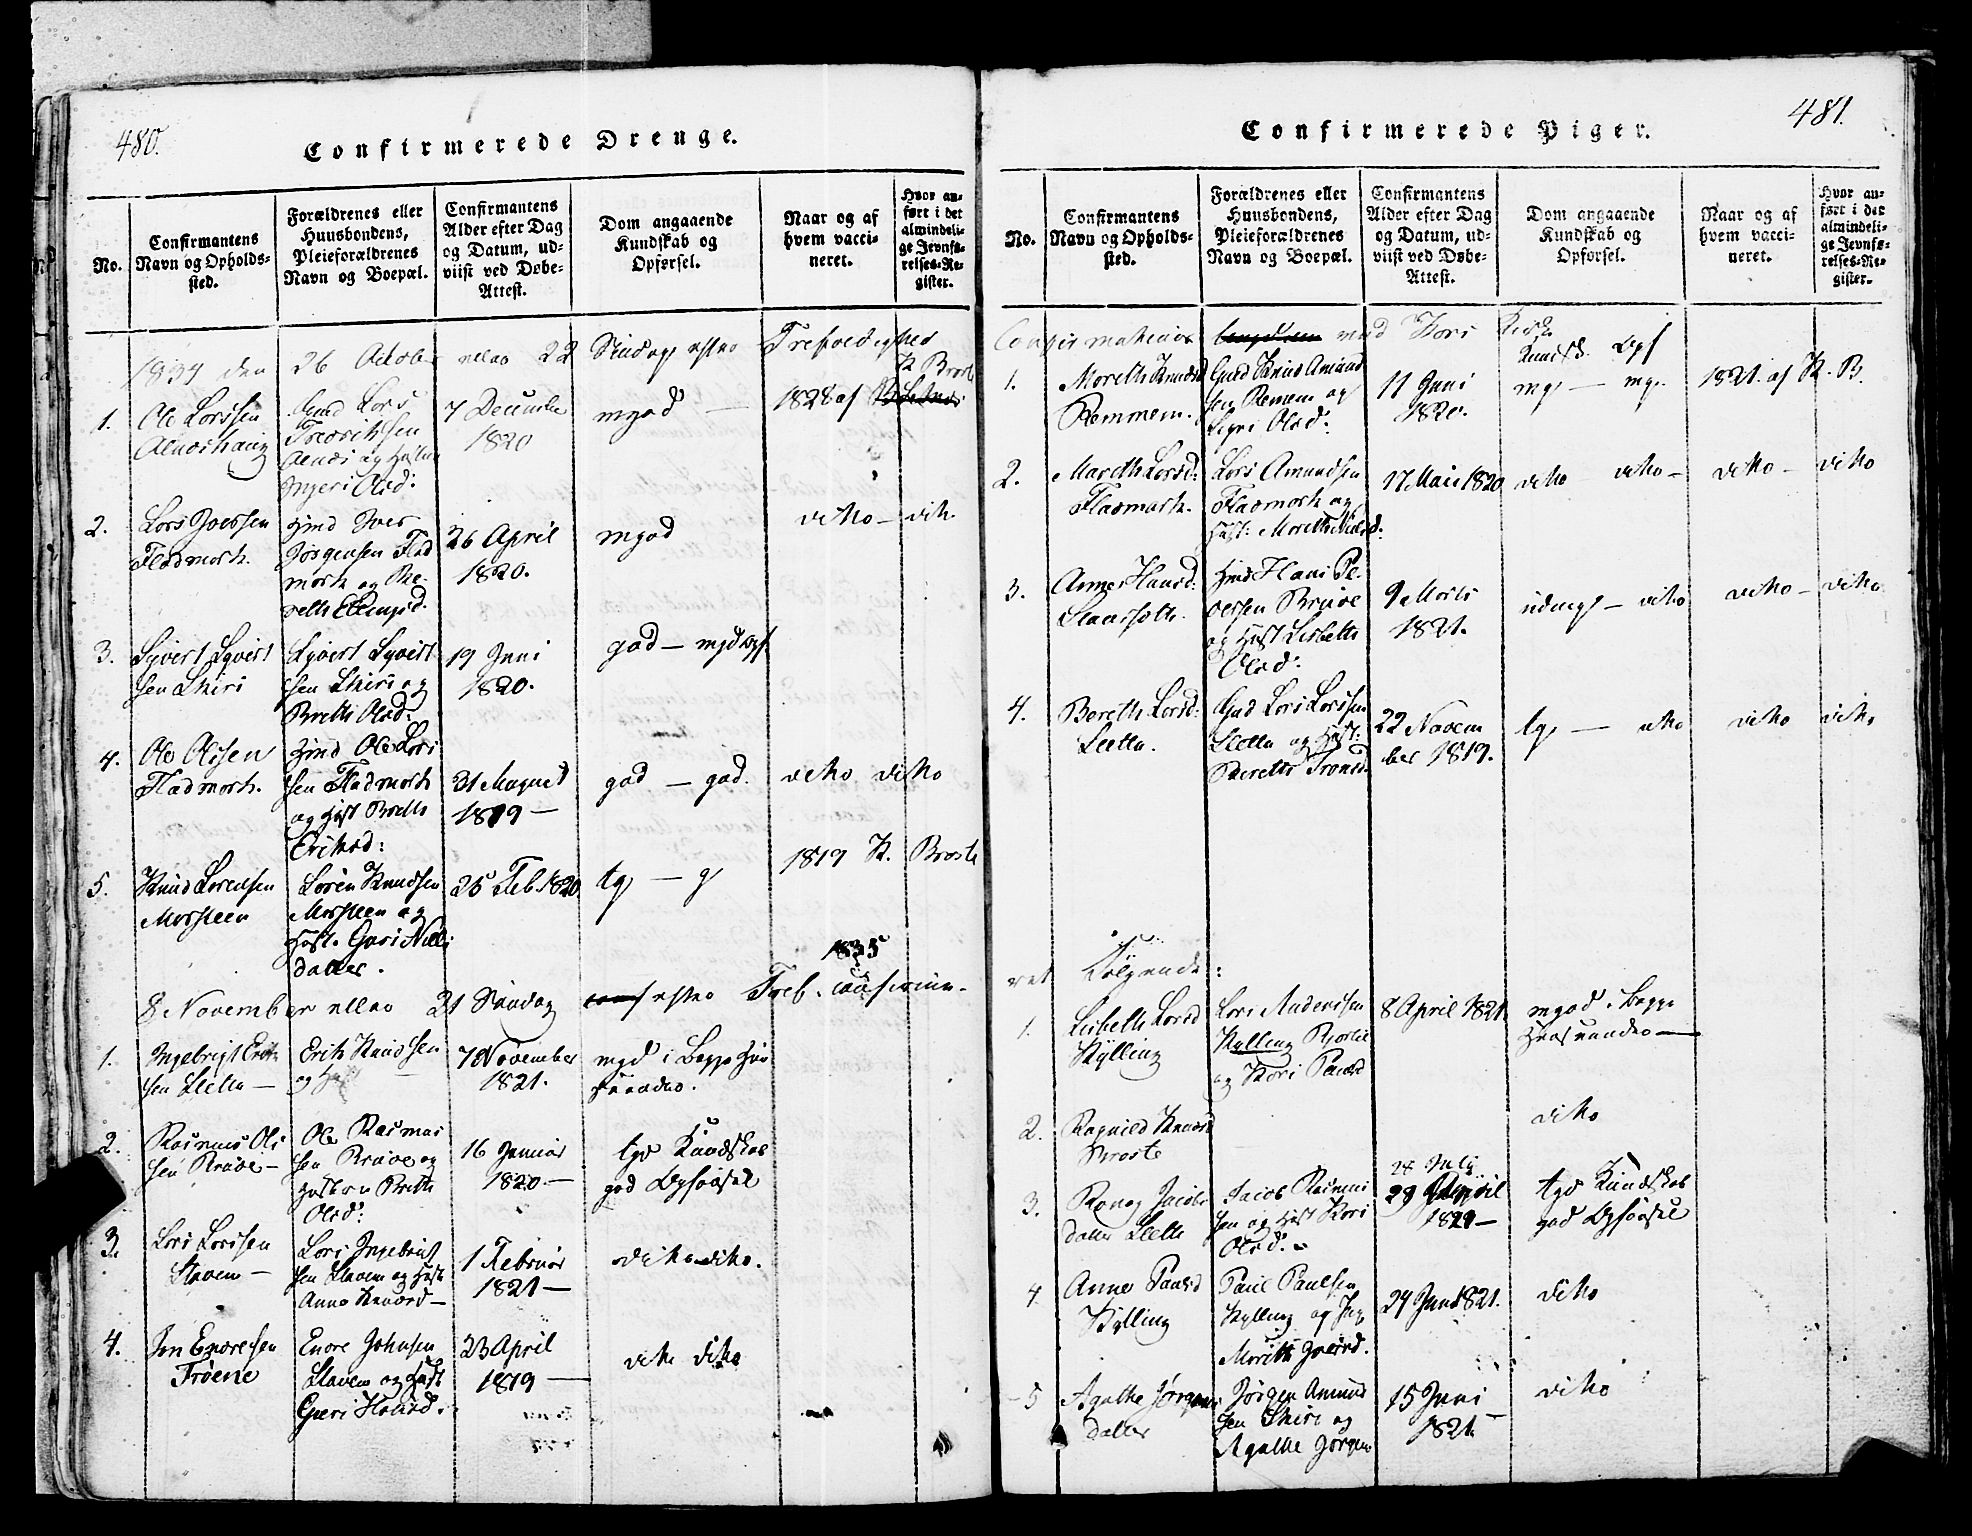 480.
Confirmerede Drenge.
No.
Confirmantens
Navn og Opholds-
sted.
Forældrenes eller
Huusbondens,
Pleieforældrenes
Navn og Boepæl.
Confirmantens
Alder efter Dag
og Datum, ud-
viist ved Døbe-
Attest.
Dom angaaende
Kundskab og
Opførsel.
Naar og af
hvem vacci-
neret.
Hvor an-
ført i det
almindeli-
ge Jevnfø-
relses-Re-
gister.
1834 den 26 October 22 Søndag efter Trefoldighed
1.
Ole Larssen
Lars
Fredrichsen
og
Ingeri Olsd:
7 December
1820
mgod —
1828 af K Broste
2.
Lars Iversen
Fladmark.
Iver
Jørgensen Flad
mark og
26 April
1820.
mgod
dito — dito
3.
Syvert Syvert
sen Skiri
Syvert Syvert
sen Skiri og
Brette Olsd:
19 Juni
1820.
god — mgod opf
4.
Ole Olssen
Fladmark.
Ole Lars
sen Fladmark
og Hust Brette
Eriksd:
31 August
1819 —
god — god.
dito dito
5.
Knud Lorensen
Morsteen
Loren Knudsen
Morsteen og
Hust. Guri Niels
datter.
25 Feb. 1820
tg — g
1819 K. Broste
8 November 21 Søndag efter Tref. 1835
1.
Ingebrigt Erik
sen Sletta —
Erik Knudsen
og
7 November
1821.
mgd i Begge Hen
seender.
2.
Rasmus Ols
sen Brude —
Ole Rasmus
sen Brude og
Hustru Brette
Olsd:
16 Januar
1820 —
tgo Kundskab
god Opførsel
3.
Lars Larssen
Staven —
Lars Ingebrigt
sen Staven og Hust
Anne Knudsd —
1 Februar
1821 —
dito dito.
4.
Jon Endresen
Trøene
Endre Johnsen
Staven og Hust
Guri Hansd.
23 April
1819 —
dito dito
481.
Confirmerede Piger.
No.
Confirmantens
Navn og Opholds-
sted.
Forældrenes eller
Huusbondens,
Pleieforældrenes
Navn og Boepæl.
Confirmantens
Alder efter Dag
og Datum, ud-
viist ved Døbe-
Attest.
Dom angaaende
Kundskab og
Opførsel.
Naar og af
hvem vacci-
neret.
Hvor an-
ført i det
almindeli-
ge Jevnfø-
relses-Re-
gister.
Confirmation ved Kors Kirke
Kundsk. Opf
1.
Mareth Knudsd
Remmem.
Knud Amund
sen Remem og
Sigri Olsd:
11 Juni
1820.
mg — mg.
1821. af K. B.
2.
Mareth Larsd:
Fladmark.
Lars Amundsen
Fladmark og
Hust:
17 Mai 1820
dito dito —
dito — dito
3.
Anne Hansd:
Hans Pe-
dersen Brude
og Hust Lisbeth
Olsd:
9 Marts
1821.
udmg — dito
dito — dito
4.
Bereth Larsd:
Sletta.
Lars Larssen
Sletta og Hust:
Berette Tronsd
22 Novem
ber 1819.
tg — dito
dito dito
ret Følgende:
1.
Lisbeth Larsd
Kylling
Lars Andersen
Kylling
og Kari
8 April 1821.
mgod i Begge
Henseender —
2.
Ragnild Knudsd
Broste
dito
3.
Ranog Jacobs
datter Sletta
Jacob Rasmus
sen og Hust Kari
Olsd:
28 July
tgo Kundskab
god Opførsel
4
Anne Paulsd
Kylling
Paul Paulsen
Kylling og
24 Juni 1821.
dito
5
Agathe Jørgens
datter
Jørgen Amund
sen Skiri og
Agathe Jørgen
15 Juni
1821.
dito